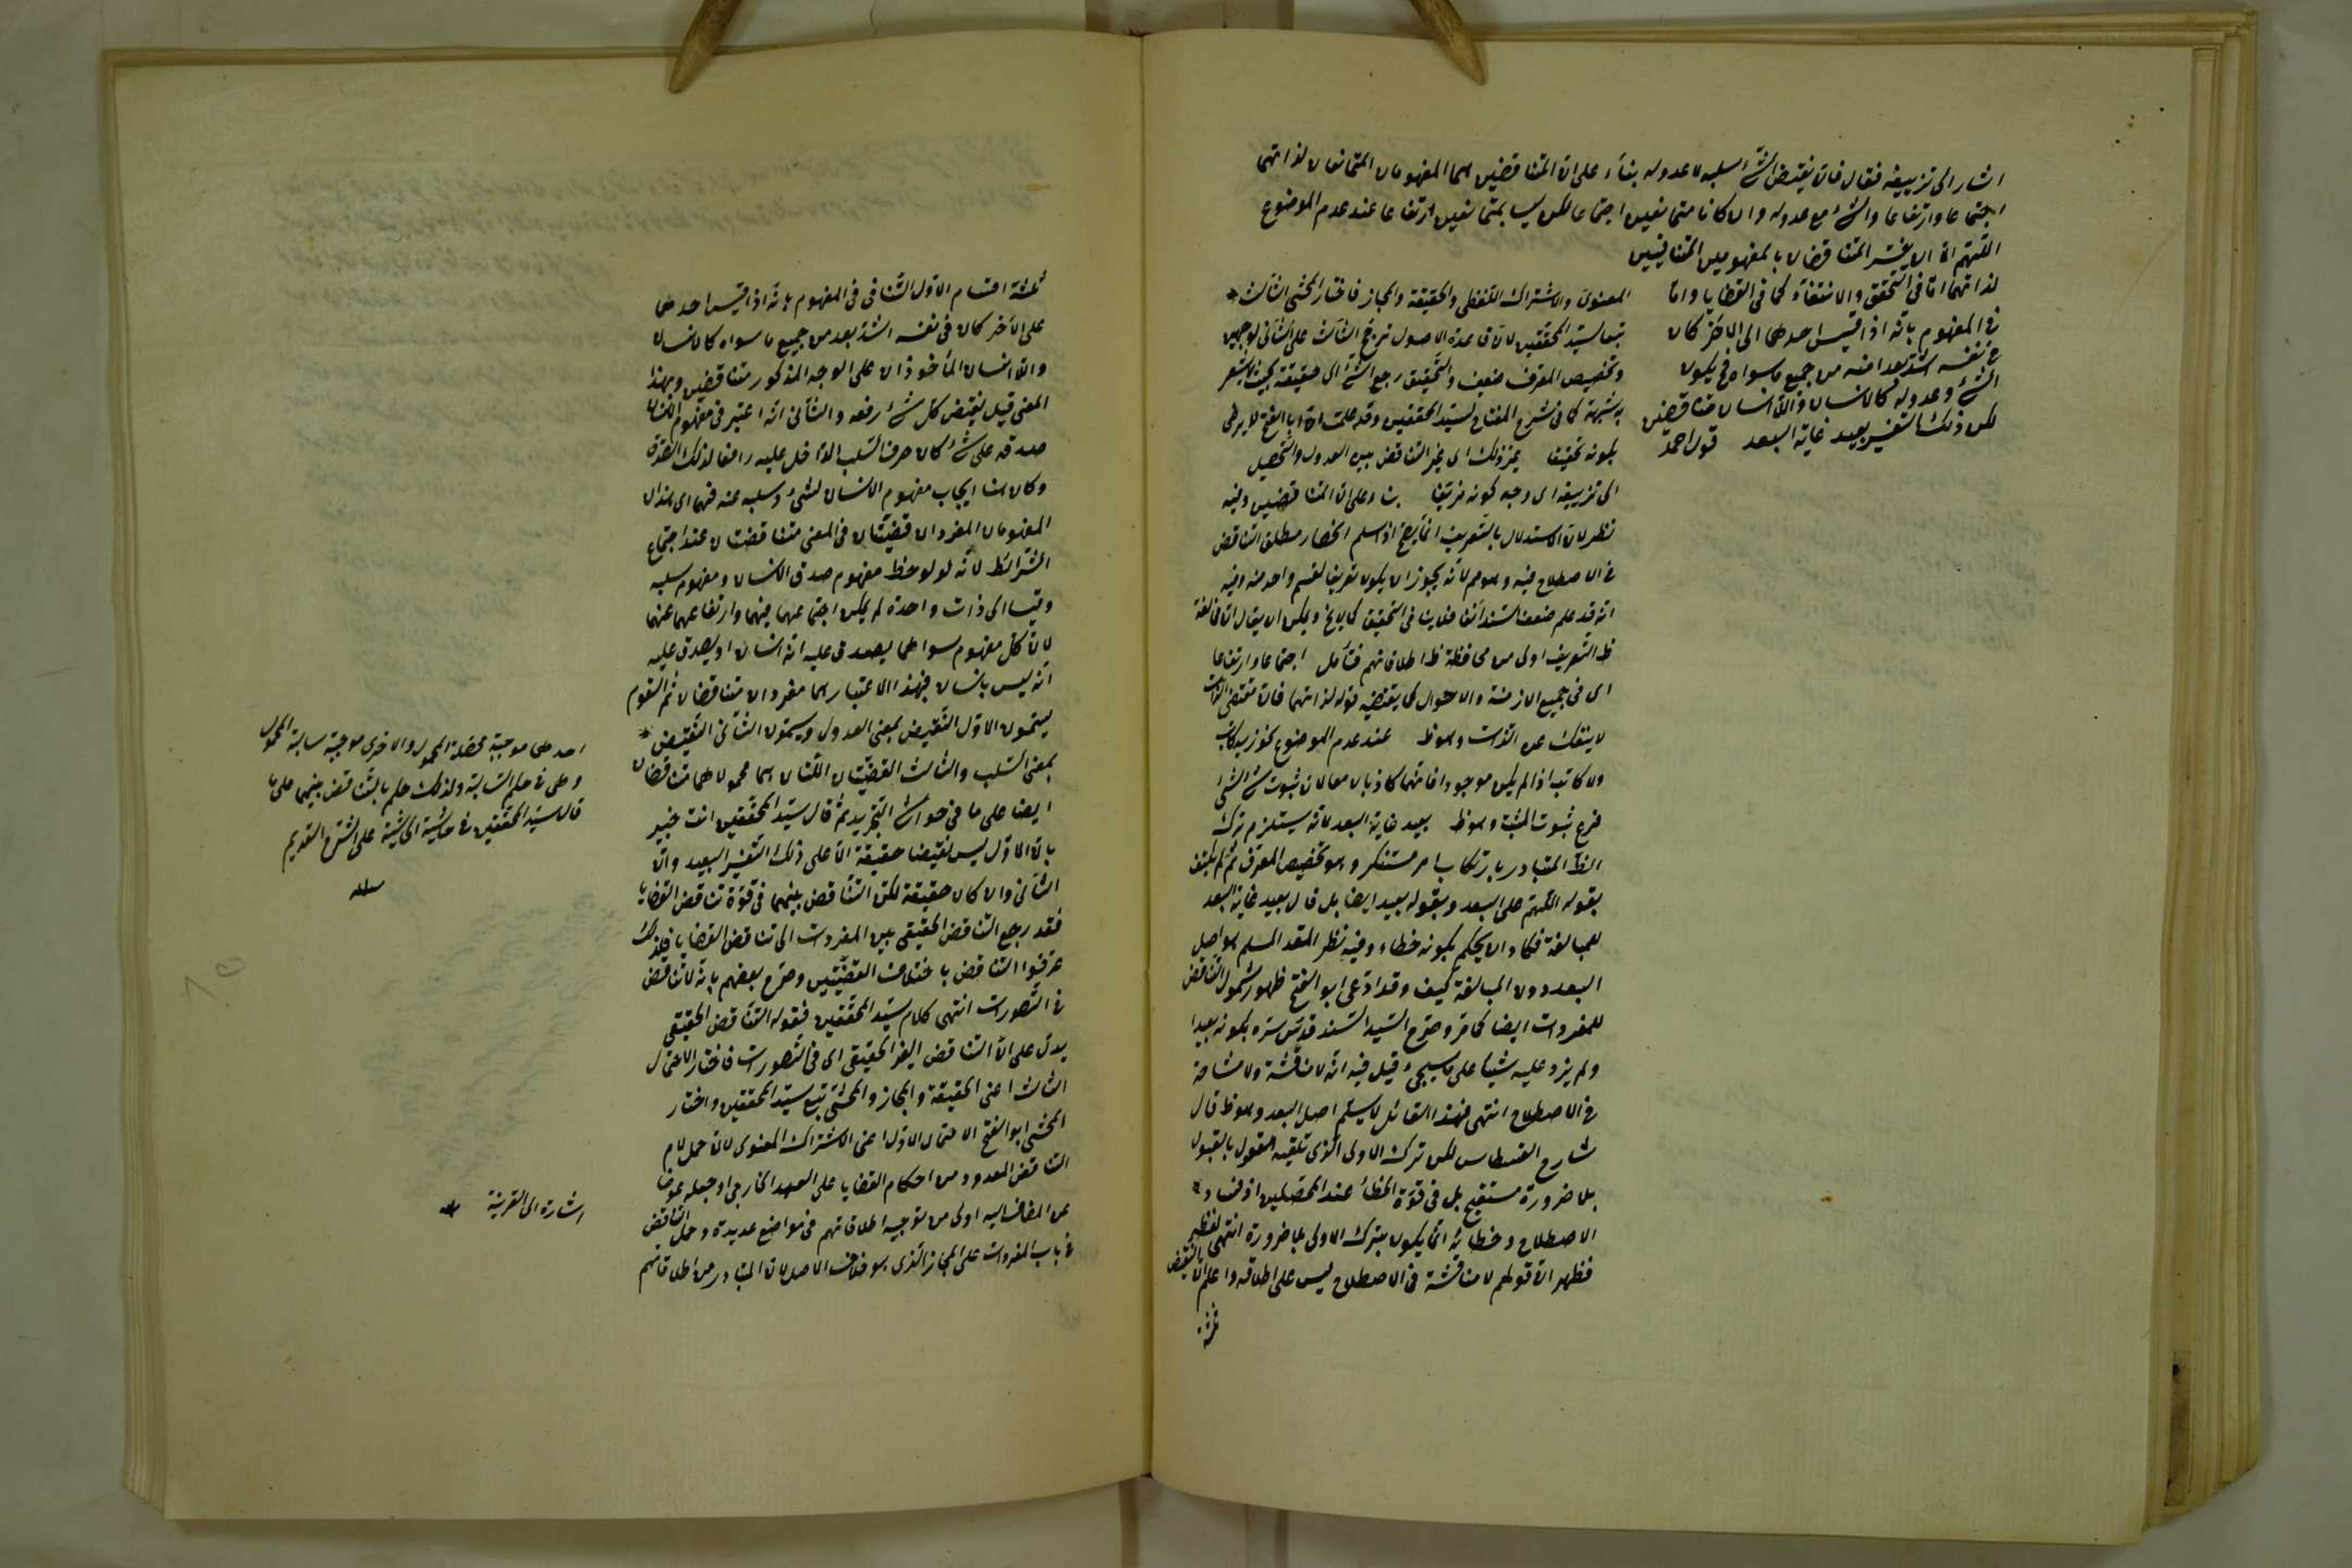 اشار الى تزييفه فقال فان نقيض الشئ سلبه لا عدوله بناء على ان المتناقضين هما المفهومان المتمانعان لذاتهما
اجتماعا وارتفاعا والشئ مع عدوله وان كانا متمانعين اجتماعا لكن ليسا بمتمانعين ارتفاعا عند عدم الموضوع
اللهم الا ان يفسر المتناقضان بالمفهومين المتنافيين
لذاتهما اما فى التحقق والانتفاء كما فى القضايا واما
فى المفهوم بانه اذا قيس احدهما الى الاخر كان
فى نفسه اشد بعدا منه من جميع ما سواه فح يكون
الشئ وعدوله كالانسان واللاانسان متناقضين
لكن ذلك التفسير بعيد غاية البعد قول احمد
المعنوى والاشتراك اللفظى والحقيقة والمجاز فاختار المحشى الثالث
تبعا لسيد المحققين لان قاعدة الاصول ترجح الثالث على الثانى لوجهين
وتخصيص المعرف ضعيف والتحقيق رجع الشئ الى حقيقته بحيث لا
به شبهة كما فى شرح المفتاح لسيد المحققين وقد علمت ان ابا الفتح لا يرضى
بكونه تحقيقا يمنزلك اى التناقض بين العدول والتحصيل
الى تزييفه اى وجه كونه مزيفا بناء على ان المتناقضين وفيه
نظر لان الاستدلال بالتعريف انما يصح اذا سلم انحصار مطلق التناقض
فى الاصطلاح فيه وهو مم لانه يجوز ان يكون تعريفا لقسم واحد منه وفيه
انه قد علم ضعف السند انفا فلا ينافى التحقيق كما لا يخ ويمكن ان يقال ان مخالفة
ظ التعريف اولى من محافظة ظ اطلاقاتهم فتأمل اجتماعا وارتفاعا
اى فى جميع الازمنة والاحوال كما يقتضيه قوله لذاتهما فان مقتضى الذات
لا ينفك عن الذات وهو ظ عند عدم الموضوع نحو زيد كاتب
ولا كاتب اذا لم يكن موجودا فانهما كاذبان معا لان ثبوت شئ لشئ
فرع ثبوت المثبت وهو ظ بعيد غاية البعد لانه يستلزم ترك
الظ المتبادر بارتكاب امر مستنكر وهو تخصيص المعرف ثم لم يكتف
بقوله اللهم على البعد وبقوله بعيد ايضا بل قال بعيد غاية البعد
للمبالغة فكاد ان يحكم بكونه خطاء وفيه نظر المقدم المسلم هو اصل
البعد دون المبالغة كيف وقد ادعى ابو الفتح ظهور شمول التناقض
للمفردات ايضا كما مر وصرح السيد السند قدس سره بكونه بعيدا
ولم يزد عليه شيئا على ما سيجئ قيل فيه انه لا مناقشة ولا مشاحة
فى الاصطلاح انتهى فهذا القائل لا يسلم اصل البعد وهو ظ قال
شارح القسطاس لكن ترك الاولى الذى تلقيه العقول بالقبول
بلا ضرورة مستقبح بل فى قوة الخطأ عند المحصلين اذ فساد
الاصطلاح وخطائه انما يكون بترك الاولى بلا ضرورة انتهى لفظه
فظهر ان قولهم لا مناقشة فى الاصطلاح ليس على اطلاقه واعلم ان النقيض
ثلثة
ثلثة اقسام الاول التنافى فى المفهوم بانه اذا قيس احدهما
على الاخر كان فى نفسه اشد بعدا من جميع ما سواه كالانسان
واللاانسان المأخوذان على الوجه المذكور متناقضين وبهذا
المعنى قيل نقيض كل شئ رفعه والثانى انه اعتبر فى مفهوم الانسان
صدقه على شئ كان حرف السلب الداخل عليه رافعا لذلك الصدق
وكان هنا ايجاب مفهوم الانسان لشئ وسلبه عنه فهما اى هذان
المفهومان المفردان قضيتان فى المعنى متناقضتان عند اجتماع
الشرائط لانه لو لوحظ مفهوم صدق الانسان ومفهوم سلبه
وقيسا الى ذات واحدة لم يمكن اجتماعهما فيهما وارتفاعهما عنهما
لان كل مفهوم سواهما يصدق عليه انه انسان او يصدق عليه
انه ليس بانسان فبهذا الاعتبار هما مفردان متناقضان ثم القوم
يسمون الاول النقيض بمعنى العدول ويسمون الثانى النقيض
بمعنى السلب والثالث القضيتان اللتان هما محمولاهما متناقضان
ايضا على ما فى حواشى التجريد ثم قال سيد المحققين انت خبير
بان الاول ليس نقيضا حقيقة الا على ذلك التفسير البعيد وان
الثانى وان كان حقيقة لكن التناقض بينهما فى قوة تناقض القضايا
فقد رجع التناقض الحقيقى بين المفردات الى تناقض القضايا فلذلك
عرفوا التناقض باختلاف القضيتين وصرح بعضهم بانه لا تناقض
فى التصورات انتهى كلام سيد المحققين فقوله التناقض الحقيقى
يدل على ان التناقض الغير الحقيقى اى فى التصورات فاختار الاحتمال
الثالث اعنى الحقيقة والمجاز والمحشى تبع سيد المحققين واختار
المحشى ابو الفتح الاحتمال الاول اعنى الاشتراك المعنوى لان حمل لام
التناقض المعدود من احكام القضايا على العهد الخارجى او جعله عوضا
عن المضاف اليه اولى من توجيه اطلاقاتهم فى مواضع عديدة وحمل التناقض
فى باب المفردات على المجاز الذى هو خلاف الاصل لان المتبادر من اطلاقاتهم
احدهما موجبة محصلة المحمول والاخرى موجبة سالبة المحمول
وهى فى حكم السالبة ولذلك حكم بالتناقض بينهما على ما
قال سيد المحققين فى حاشية الحاشية على الشرح القديم
منه
اشارة الى القرينة
منه